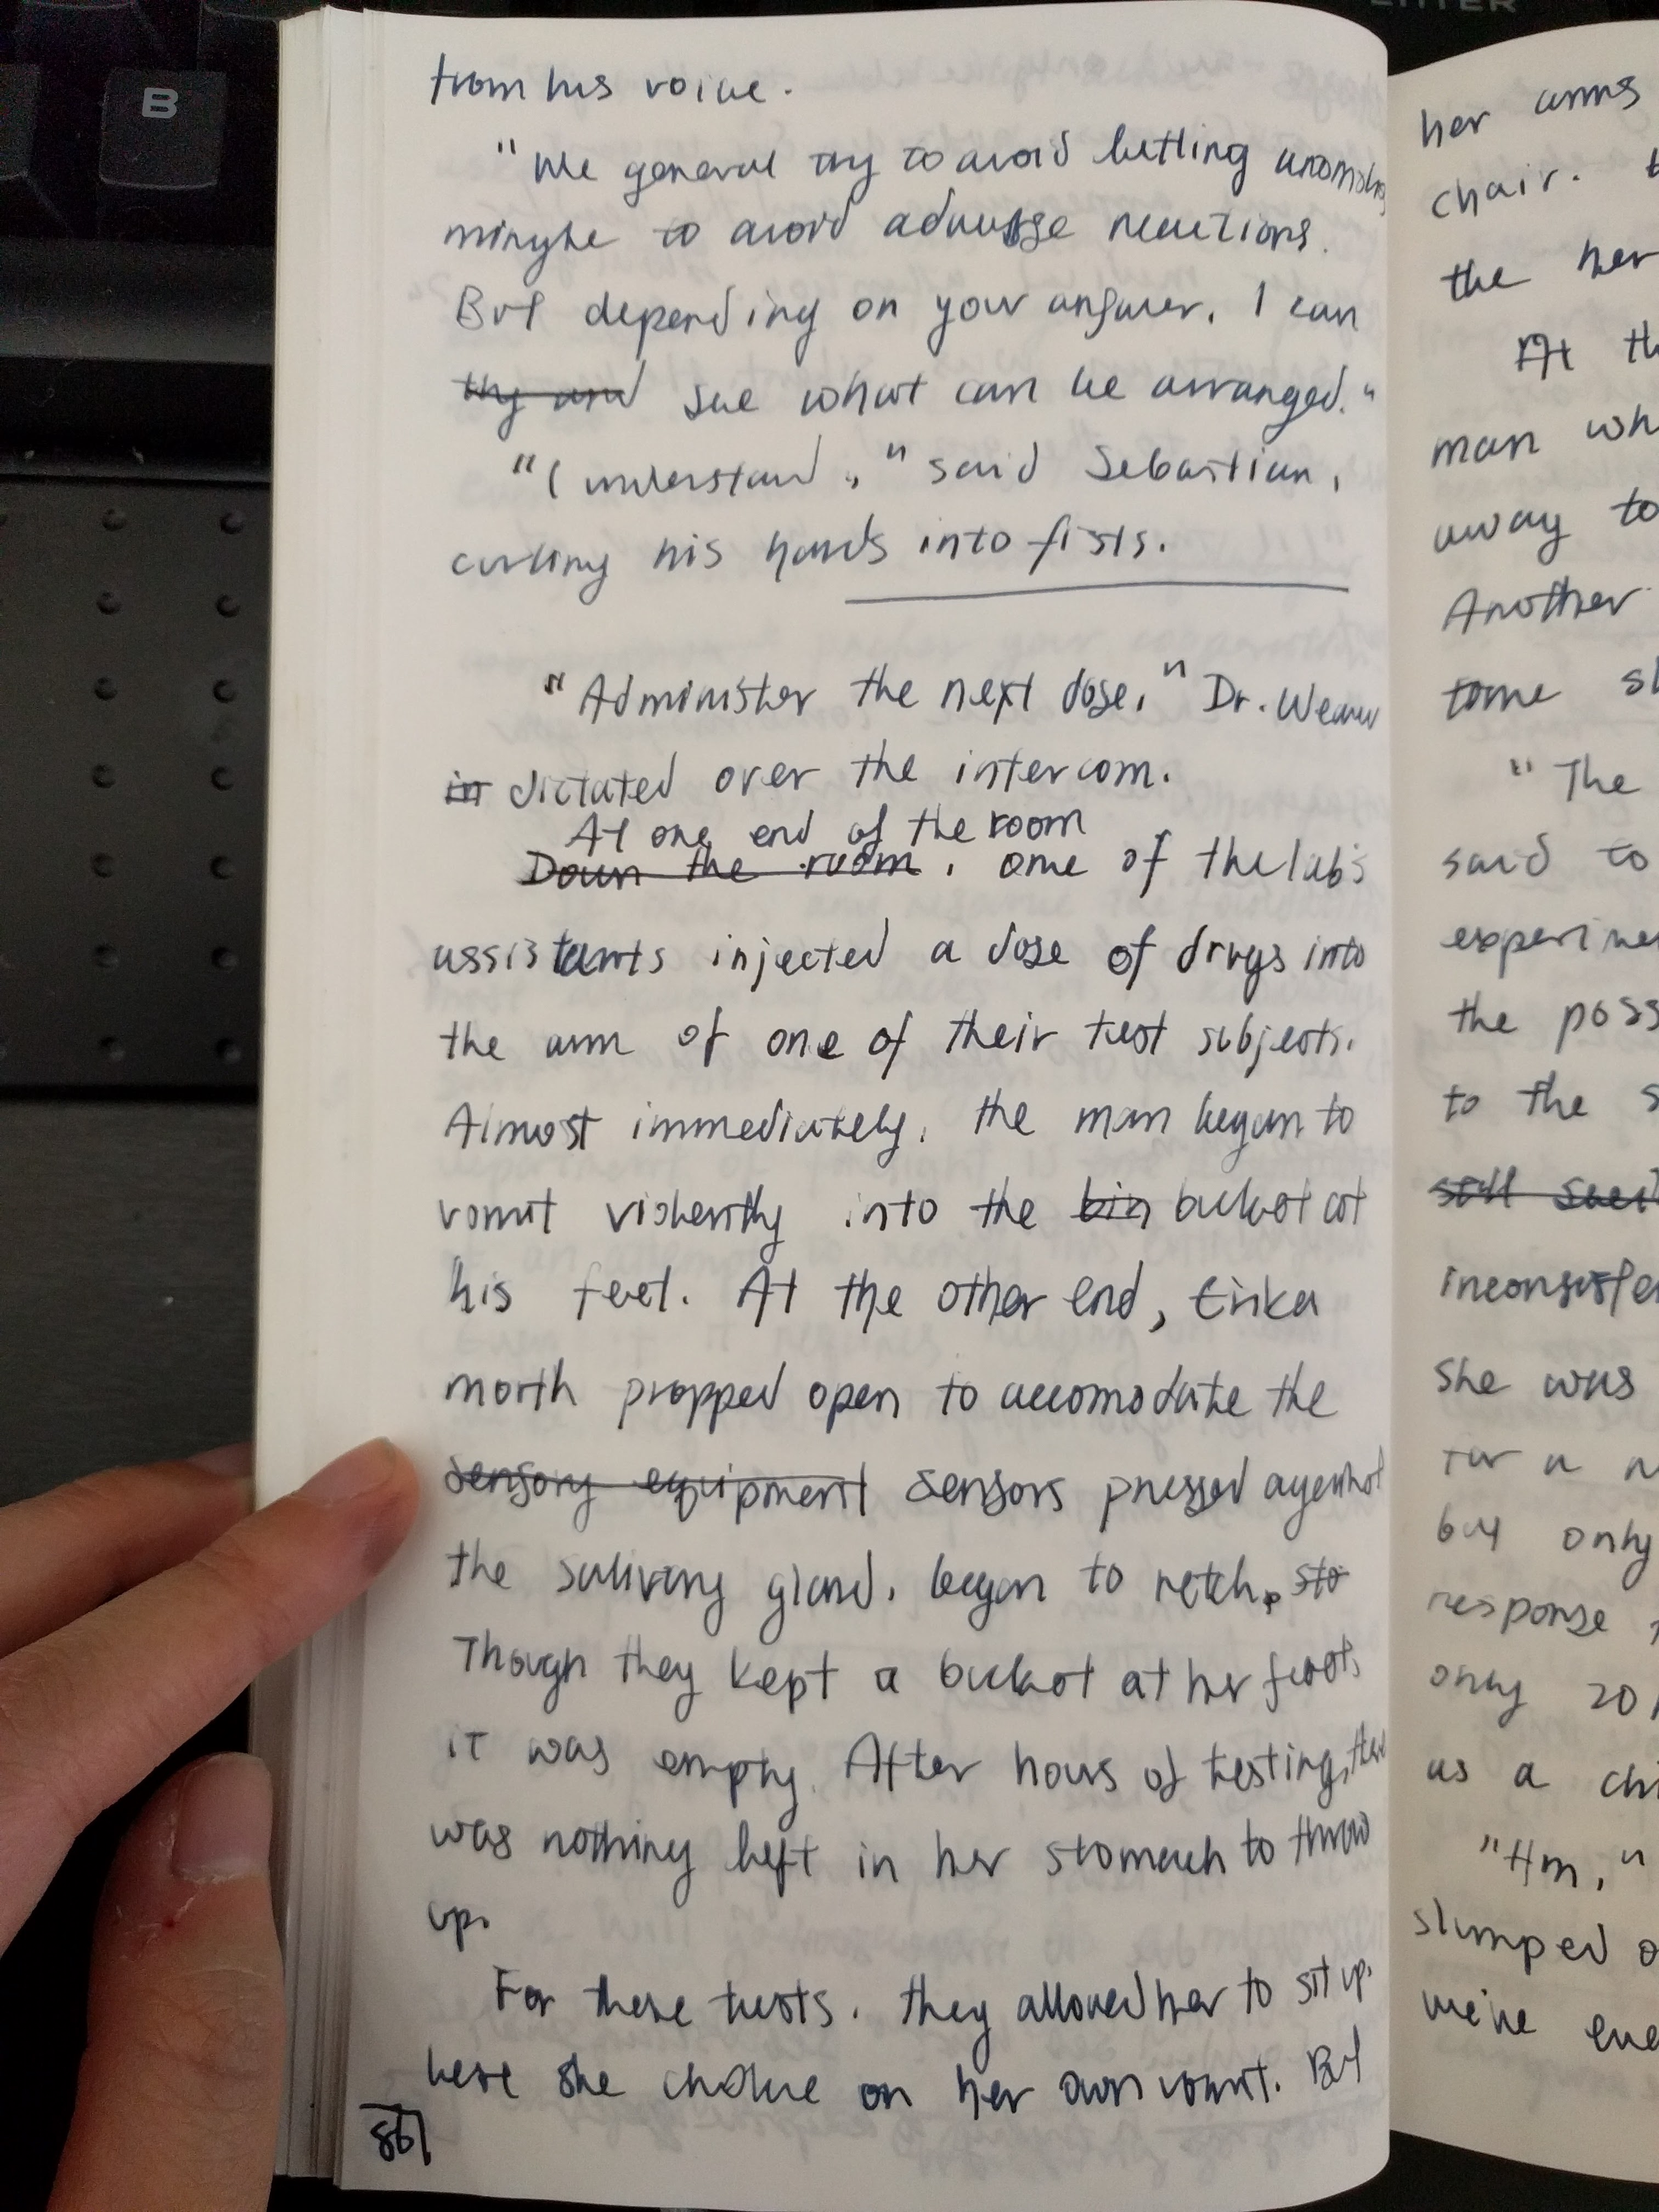 B
from his voice.
"We general try to avoid letting anomalies
mingle to avoid adverse reactions.
But depending on your answer, I can
try and see what can be arranged."
"I understand," said Sebastian,
curling his hands into fists.
"Administer the next dose," Dr. Weaver
in dictated over the intercom.
At one end of the room
Down the room, one of the lab's
assistants injected a dose of drugs into
the arm of one of their test subjects.
Almost immediately, the man began to
vomit violently into the bin bucket at
his feet. At the other end, Erika
mouth propped open to accomodate the
sensory equipment sensors pressed against
the salivary gland, began to retch. sto
Though they kept a bucket at her feet,
it was empty. After hours of testing, there
was nothing left in her stomach to throw
up.
For these tests, they allowed her to sit up,
lest she choke on her own vomit. But
861
her arms
chair.
the her
At th
man wh
away to
Another
tome sl
"The
said to
experime
the poss
to the s
still
inconsiste
she was
for a n
but only
response
only 20
as a chi
"Hm,"
slumped o
we've eve